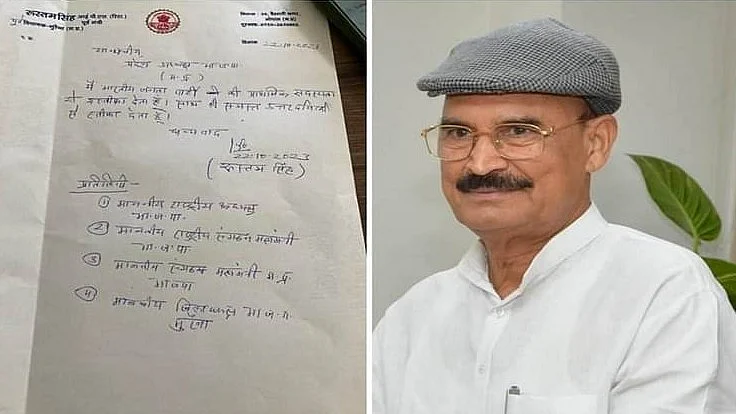 रुस्तमसिंह आई.पी.एस. (रिटा.)
पूर्व मंत्री
पूर्व विधायक-मुरैना (म.प्र.)
भोपाल (म.प्र.)
दिनांक 22.10.2023
माननीय
प्रदेश अध्यक्ष भाजपा
(म.प्र.)
मैं भारतीय जनता पार्टी की प्राथमिक सदस्यता
से इस्तीफा देता हूँ। साथ ही समस्त उत्तरदायित्वों
से इस्तीफा देता हूँ।
धन्यवाद
22.10.2023
(रुस्तम सिंह)
प्रतिलिपी -
① माननीय राष्ट्रीय अध्यक्ष
भा.ज.पा.
② माननीय राष्ट्रीय संगठन महामंत्री
भा.ज.पा
③ माननीय संगठन महामंत्री म.प्र.
भाजपा
④ माननीय जिलाध्यक्ष भा.ज.पा.
मुरैना